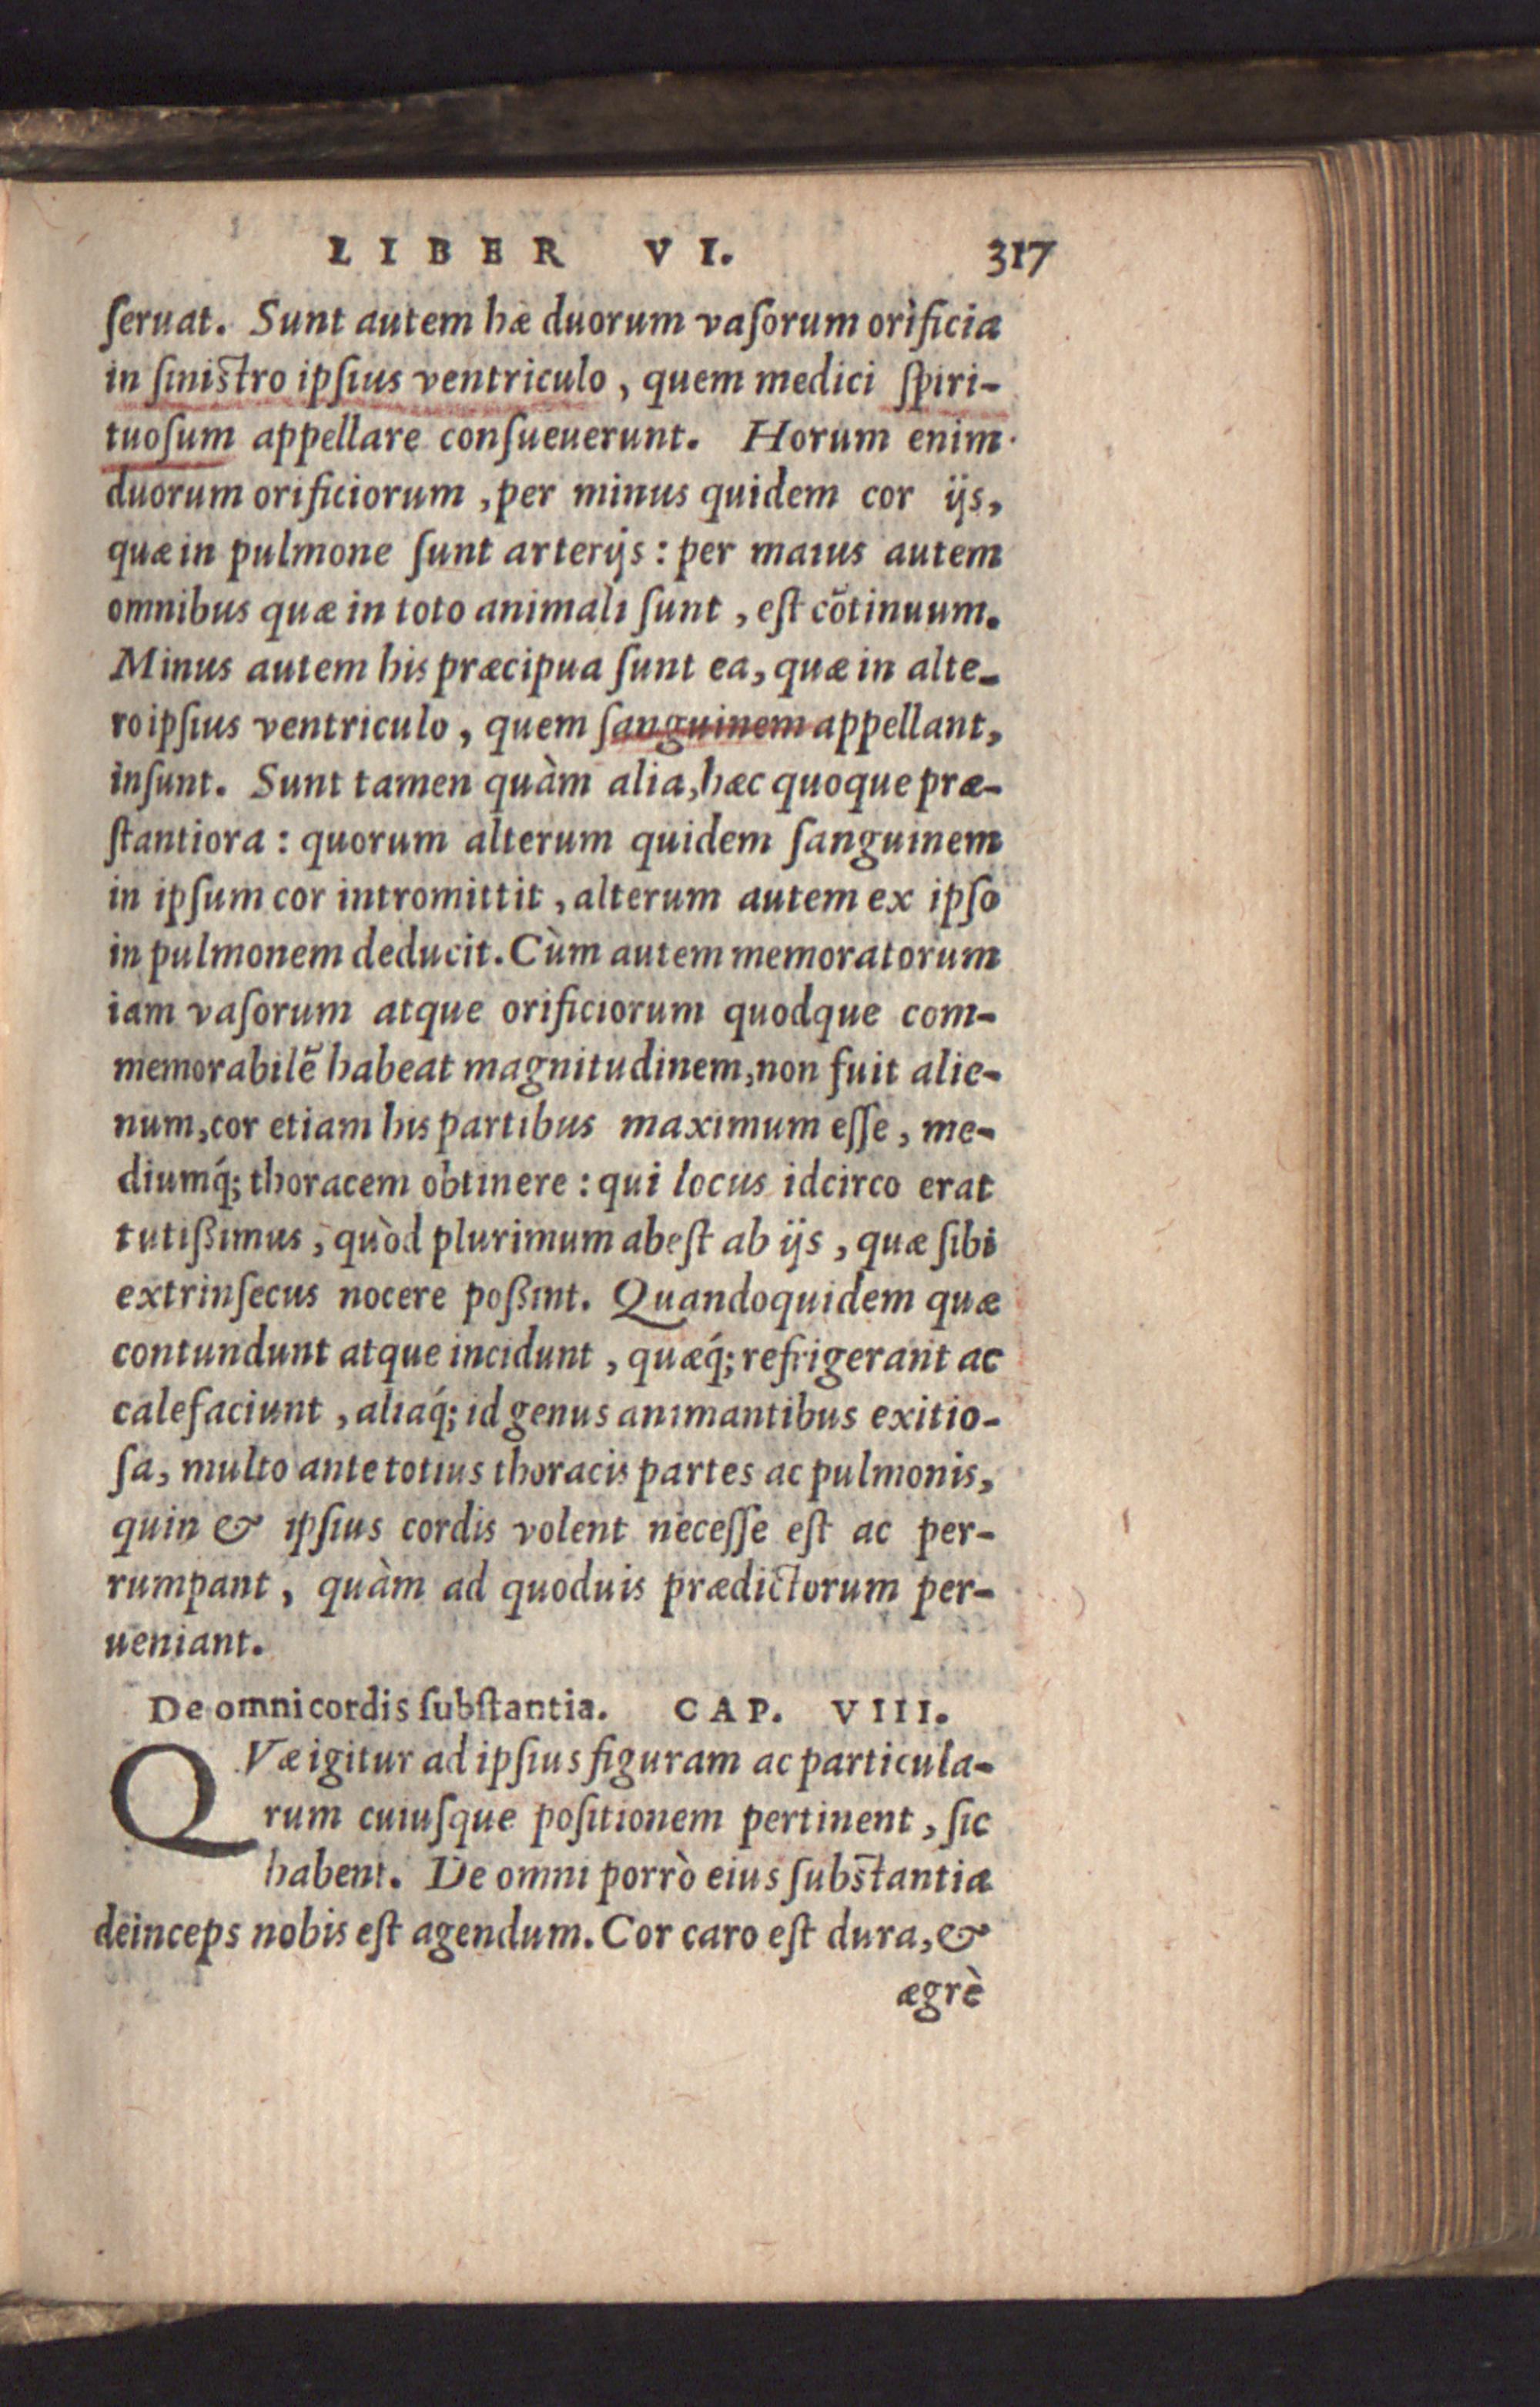 LIBER VI. 317
ſeruat. Sunt autem hæ duorum vaſorum orificia
in ſiniſtro ipſius ventriculo, quem medici ſpiri-
tuoſum appellare conſueuerunt. Horum enim
duorum orificiorum, per minus quidem cor ijs,
quæ in pulmone ſunt arterijs: per maius autem
omnibus quæ in toto animali ſunt, eſt cõtinuum.
Minus autem his præcipua ſunt ea, quæ in alte-
ro ipſius ventriculo, quem ſanguinem appellant,
inſunt. Sunt tamen quàm alia, hæc quoque præ-
ſtantiora: quorum alterum quidem ſanguinem
in ipſum cor intromittit, alterum autem ex ipſo
in pulmonem deducit. Cùm autem memoratorum
iam vaſorum atque orificiorum quodque com-
memorabilẽ habeat magnitudinem, non fuit alie-
num, cor etiam his partibus maximum eſſe, me-
diumq́; thoracem obtinere: qui locus idcirco erat
tutißimus, quòd plurimum abeſt ab ijs, quæ ſibi
extrinſecus nocere poßint. Quandoquidem quæ
contundunt atque incidunt, quæq́; refrigerant ac
calefaciunt, aliaq́; id genus animantibus exitio-
ſa, multo ante totius thoracis partes ac pulmonis,
quin & ipſius cordis volent neceſſe eſt ac per-
rumpant, quàm ad quoduis prædictorum per-
ueniant.
De omni cordis ſubſtantia. CAP. VIII.
QVæ igitur ad ipſius figuram ac particula-
rum cuiuſque poſitionem pertinent, ſic
habent. De omni porrò eius ſubſtantia
deinceps nobis eſt agendum. Cor caro eſt dura, &
ægrè